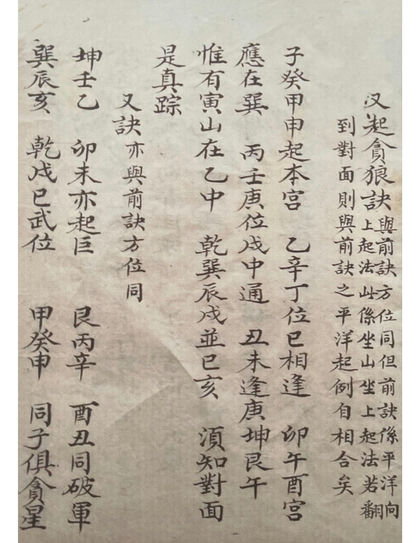 又起貪狼訣與前訣方位同但前訣係平洋向
上起法此係坐山坐上起法若翻
到對面則與前訣之平洋起例自相合矣
子癸甲申起本宮 乙辛丁位巳相逢 卯午酉宮
應在巽 丙壬庚位戌中通 丑未逢庚坤艮午
惟有寅山在乙中 乾巽辰戌並巳亥 須知對面
是真踪
又訣亦與前訣方位同
坤壬乙 卯未亦起巨 艮丙辛 酉丑同破軍
巽辰亥 乾戌巳武位 甲癸申 同子俱貪星